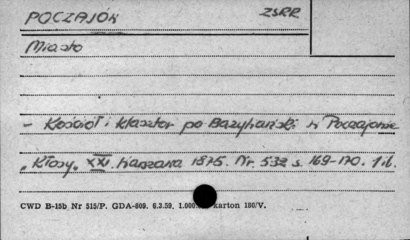 POCZAJÓW ZSRR
Miasto
- Kościół i klasztor po Bazyliański w Poczajowie
"Kłosy" XXI. Warszawa 1875. Nr. 532 s. 169-170. 1 il.
CWD B-15b Nr 515/P. GDA-809. 6.3.59. 1.000. karton 180/V.